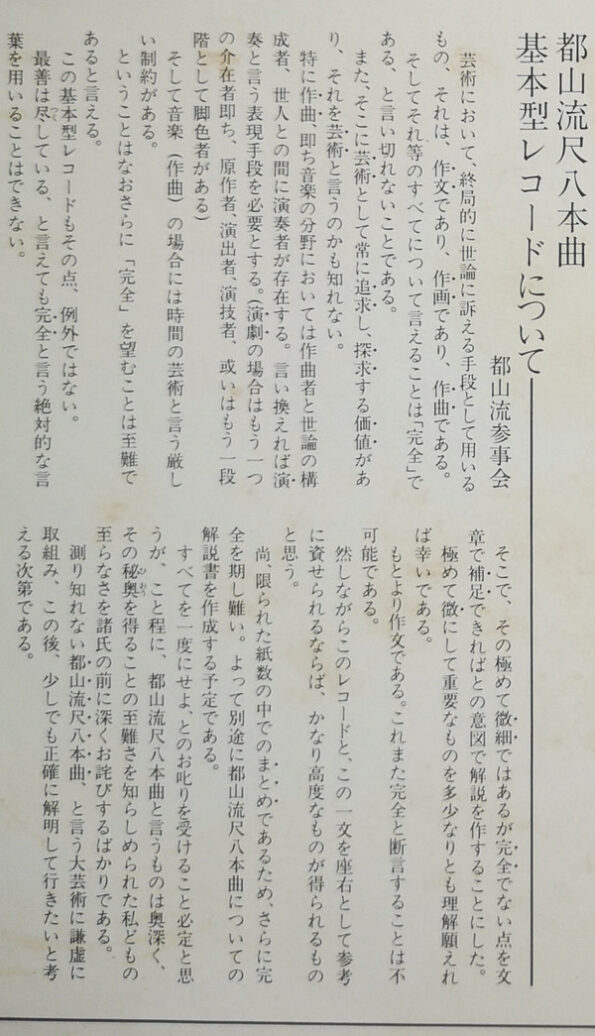 都山流尺八本曲
基本型レコードについて
都山流参事会
芸術において、終局的に世論に訴える手段として用いる
もの、それは、作文であり、作画であり、作曲である。
そしてそれ等のすべてについて言えることは「完全」で
ある、と言い切れないことである。
また、そこに芸術として常に追求し、探求する価値があ
り、それを芸術と言うのかも知れない。
特に作曲、即ち音楽の分野においては作曲者と世論の構
成者、世人との間に演奏者が存在する。言い換えれば演
奏と言う表現手段を必要とする。(演劇の場合はもう一つ
の介在者即ち、原作者、演出者、演技者、或いはもう一段
階として脚色者がある)
そして音楽(作曲)の場合には時間の芸術と言う厳し
い制約がある。
ということはなおさらに「完全」を望むことは至難で
あると言える。
この基本型レコードもその点、例外ではない。
最善は尽している、と言えても完全と言う絶対的な言
葉を用いることはできない。
そこで、その極めて微細ではあるが完全でない点を文
章で補足できればとの意図で解説を作することにした。
極めて微にして重要なものを多少なりとも理解願えれ
ば幸いである。
もとより作文である。これまた完全と断言することは不
可能である。
然しながらこのレコードと、この一文を座右として参考
に資せられるならば、かなり高度なものが得られるもの
と思う。
尚、限られた紙数の中でのまとめであるため、さらに完
全を期し難い。よって別途に都山流尺八本曲についての
解説書を作成する予定である。
すべてを一度にせよ、とのお叱りを受けること必定と思
うが、こと程に、都山流尺八本曲と言うものは奥深く、
その秘奥を得ることの至難さを知らしめられた私どもの
至らなさを諸氏の前に深くお詫びするばかりである。
測り知れない都山流尺八本曲、と言う大芸術に謙虚に
取組み、この後、少しでも正確に解明して行きたいと考
える次第である。